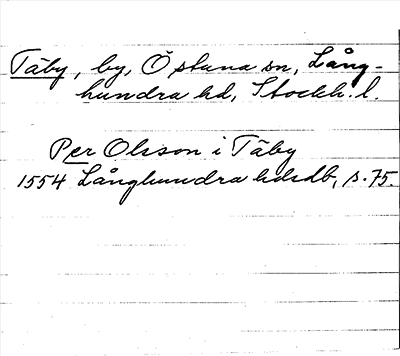 Täby, by, Östuna sn, Lång-
hundra hd, Stockh. l.
Per Olsson i Täby
1554 Långhundra hdsdb, s. 75.